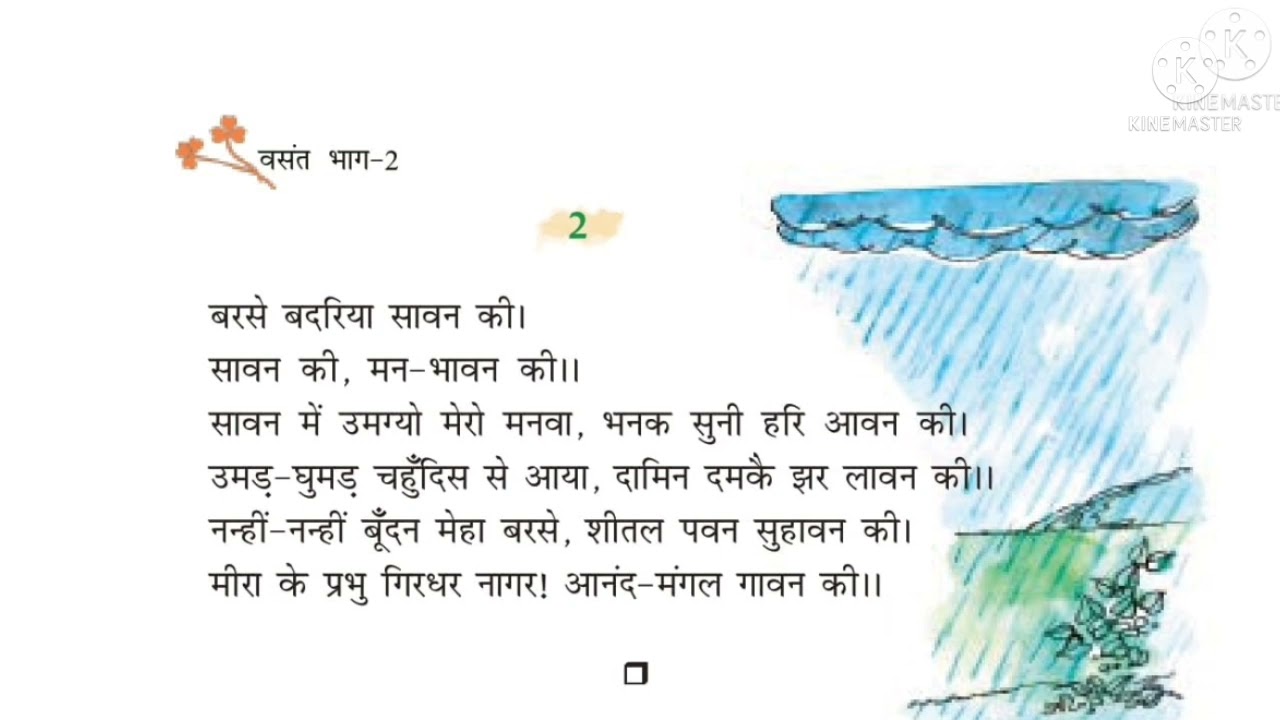 KINEMASTE
KINEMASTER
वसंत भाग-2
2
बरसे बदरिया सावन की।
सावन की, मन-भावन की।।
सावन में उमग्यो मेरो मनवा, भनक सुनी हरि आवन की।
उमड़-घुमड़ चहुँदिस से आया, दामिन दमकै झर लावन की।।
नन्हीं-नन्हीं बूँदन मेहा बरसे, शीतल पवन सुहावन की।
मीरा के प्रभु गिरधर नागर! आनंद-मंगल गावन की।।